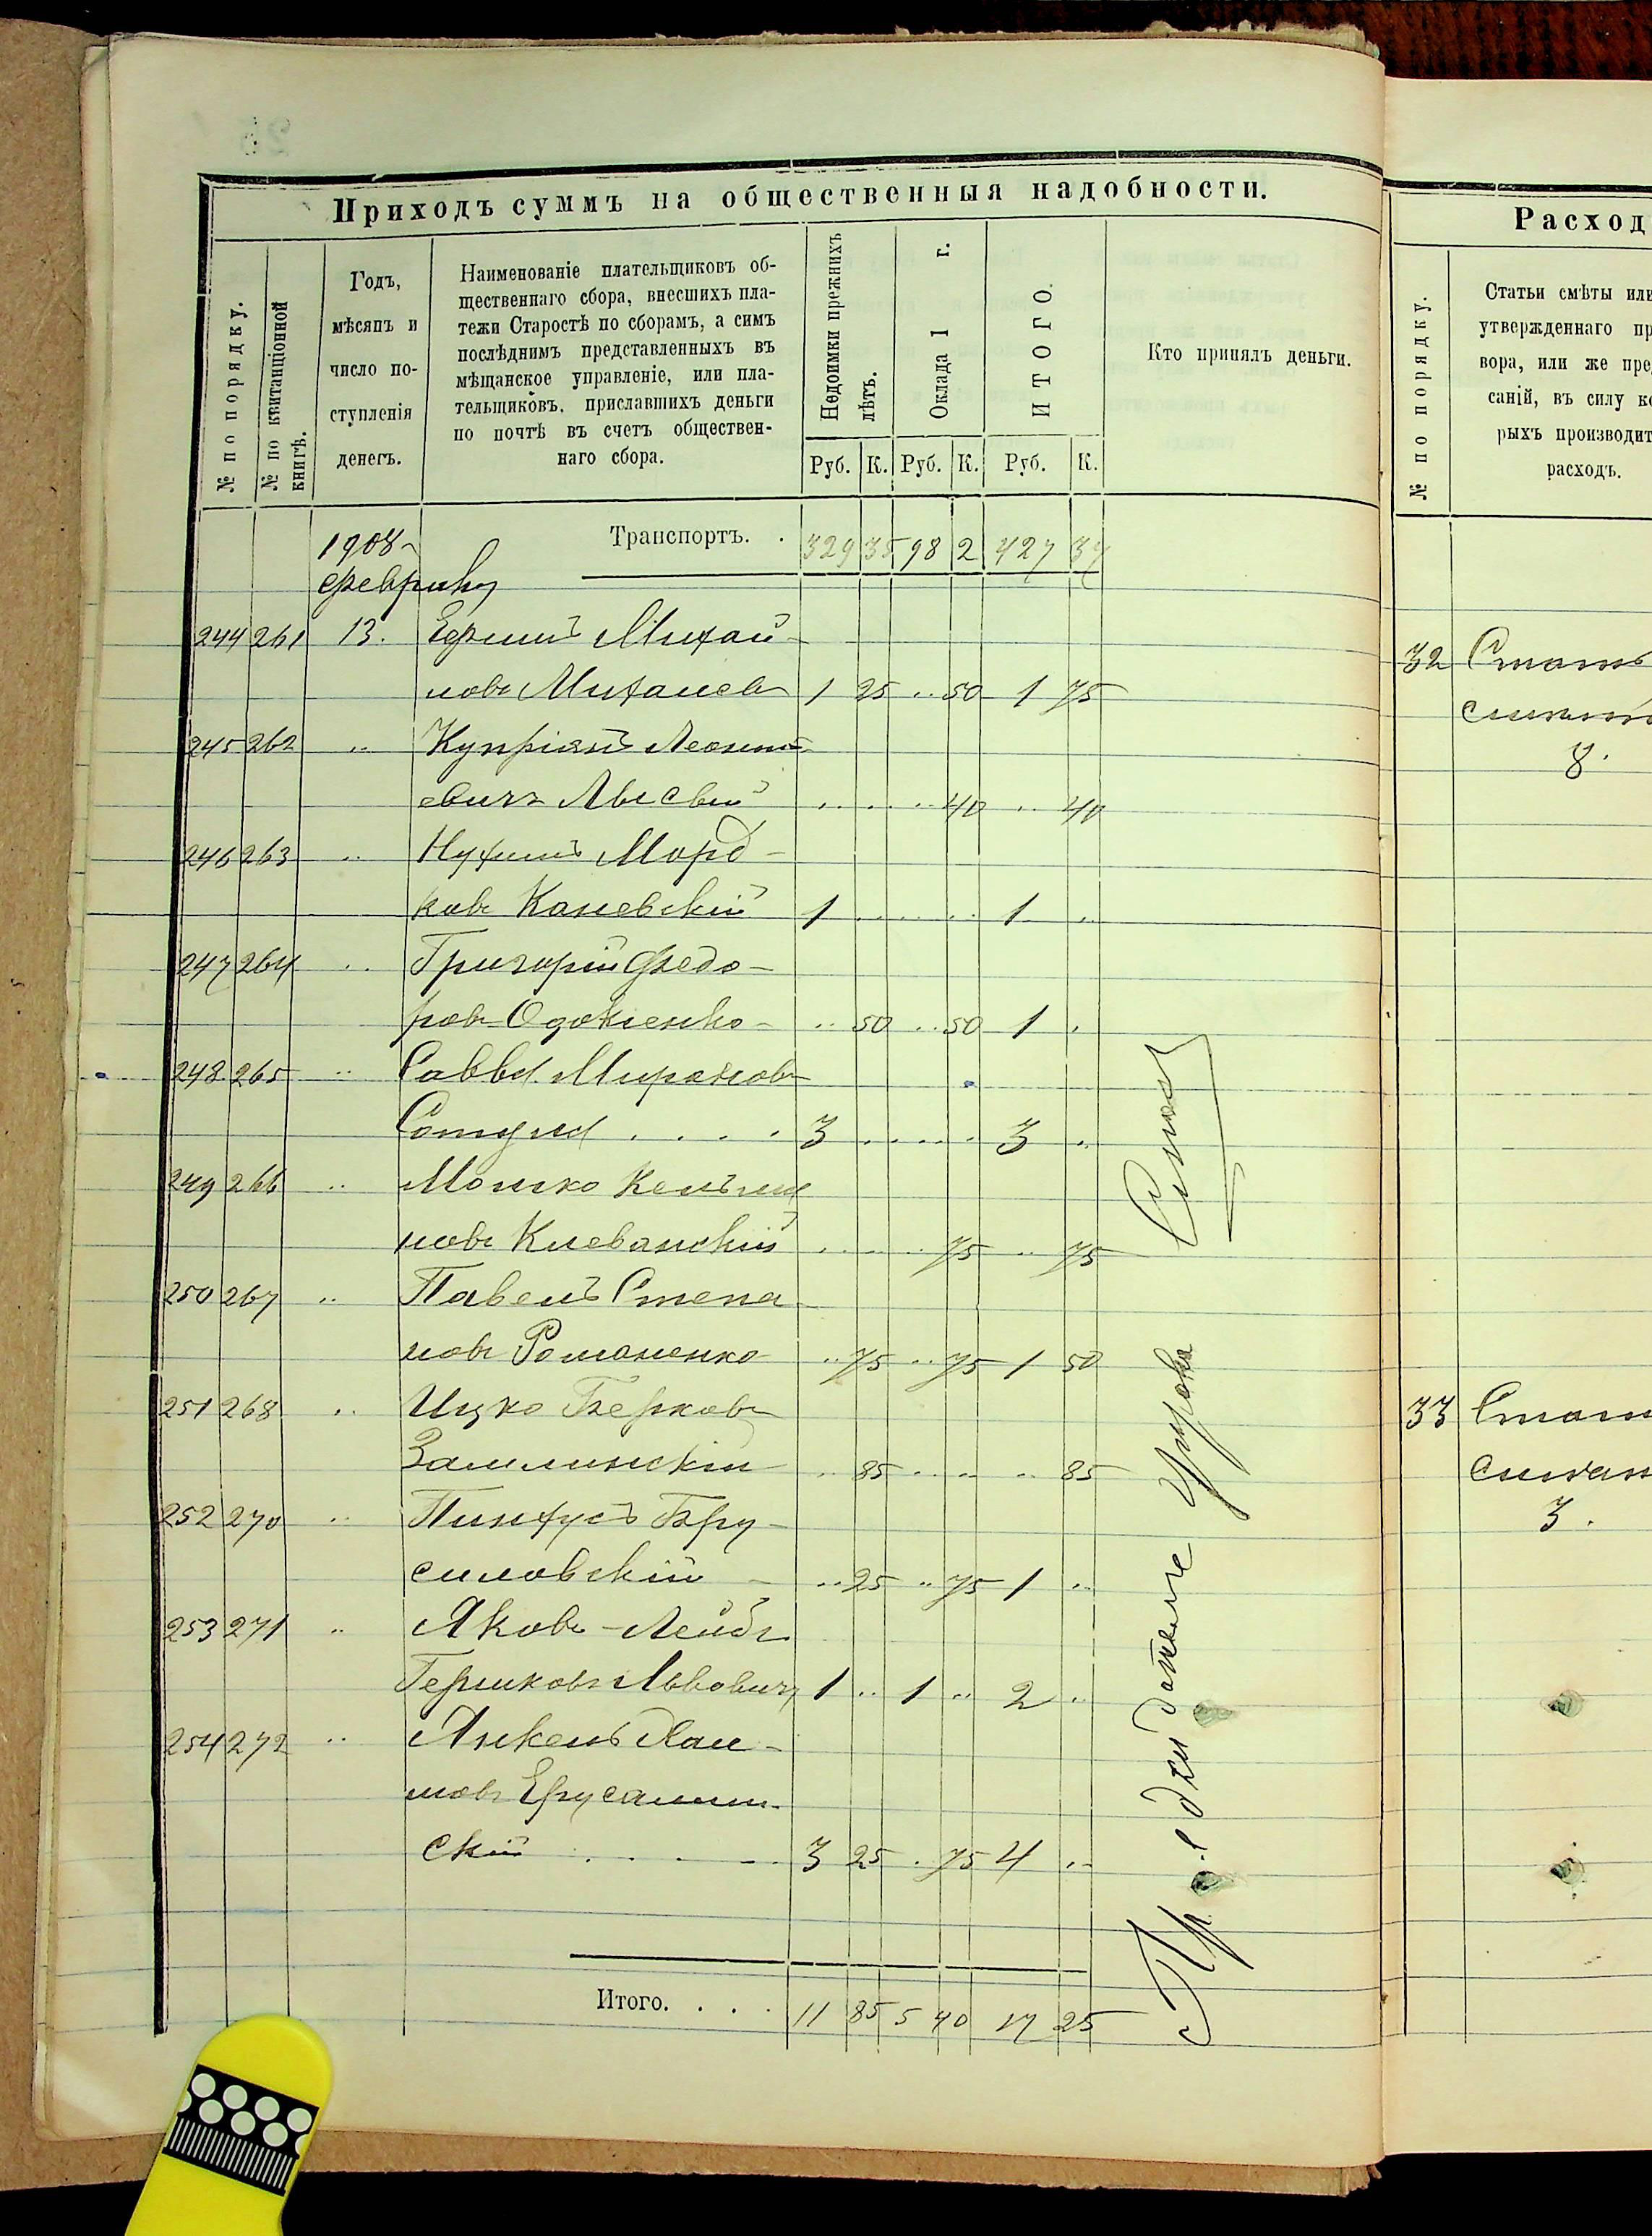 Приходъ суммъ на общественныя надобности.
№ по порядку.
№ по квитанціонной книгѣ.
Годъ,
мѣсяцъ и
число по-
ступленія
денегъ.
Наименованіе плательщиковъ об-
щественнаго сбора, внесшихъ пла-
тежи Старостѣ по сборамъ, а симъ
послѣднимъ представленныхъ въ
мѣщанское управленіе, или пла-
тельщиковъ, приславшихъ деньги
по почтѣ въ счетъ обществен-
наго сбора.
Недоимки прежнихъ лѣтъ.
Оклада 1 г.
ИТОГО.
Кто принялъ деньги.
Руб. К. Руб. К. Руб. К.
1908 Транспортъ. . 329 35 98 2 427 37
февраля
244 261 13. Ефимъ Михай-
ловъ Михалев 1 25 .. 50 1 75
245 262 .. Купріянъ Леонть-
евичъ 40 .. 40
246 263 .. Нухимъ Морд-
ковъ Каневскій 1 1 ..
247 264 .. Григорій Федо-
ровъ .. 50 .. 50 1 .
248 265 .. Савва Мироновъ
. . . . 3 3 ..
249 266 .. Мошко
новъ Клеванскій 75 .. 75
250 267 .. Павелъ Степа-
новъ Романенко .. 75 .. 75 1 50
251 268 .. Ицко Берковъ
.. 85 .. 85
252 270 .. Пинхусъ Бру-
силовскій - .. 25 .. 75 1 ..
253 271 .. Яковъ-Лейбъ
Гершковъ Львовичъ 1 .. 1 .. 2 ..
254 272 .. Янкель Хаи-
мовъ Ерусалим-
скій . . . - 3 25 . 75 4 ..
Итого. . . . 11 85 5 40 17 25
Расход
№ по порядку.
Статьи смѣты или
утвержденнаго пр
вора, или же пред
саній, въ силу ко
рыхъ производит
расходъ.
32
8.
33
3.